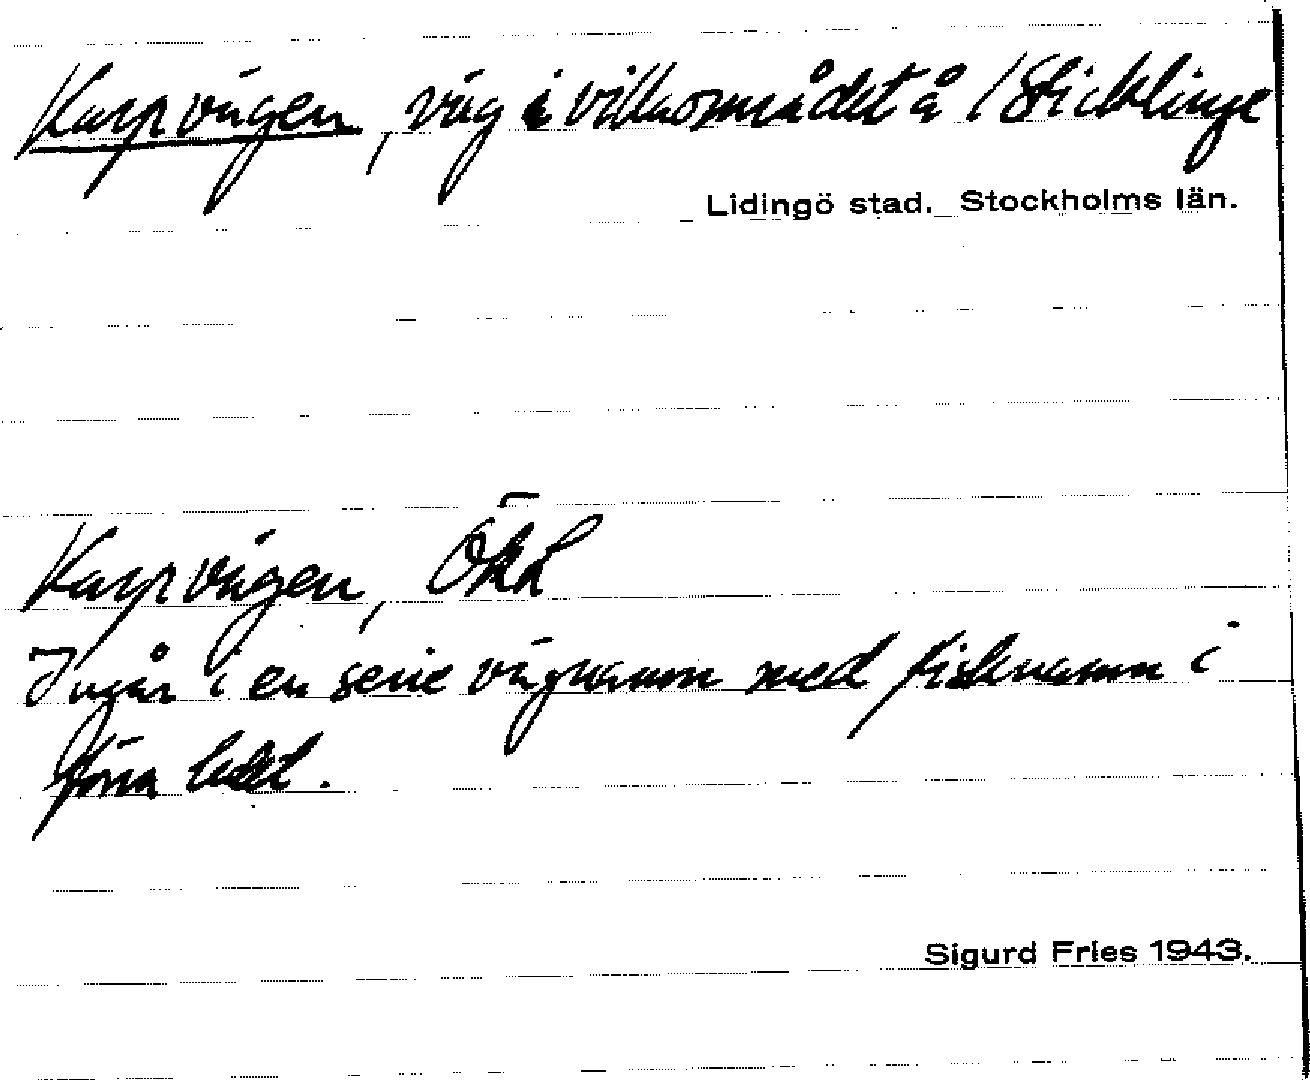 Karpvägen, väg i villaområdet å /Sticklinge
Lidingö stad. Stockholms län.
Karpvägen, ÖkL
Ingår i en serie vägnamn med fisknamn i
förra ledet.
Sigurd Fries 1943.